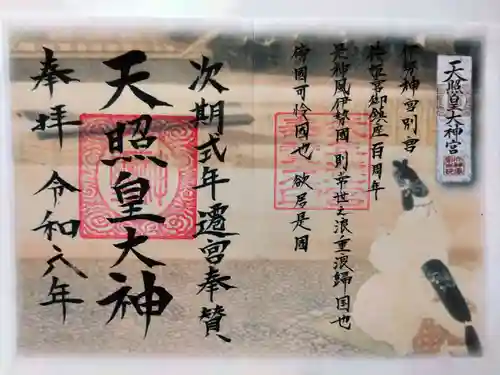 天照皇大神宮
伊勢神宮別宮
宮御鎮座百周年
是神風伊勢國則常世之浪重浪歸国也
傍國可怜國也 欲居是國
次期式年遷宮奉賛
天照皇大神
奉拝 令和六年